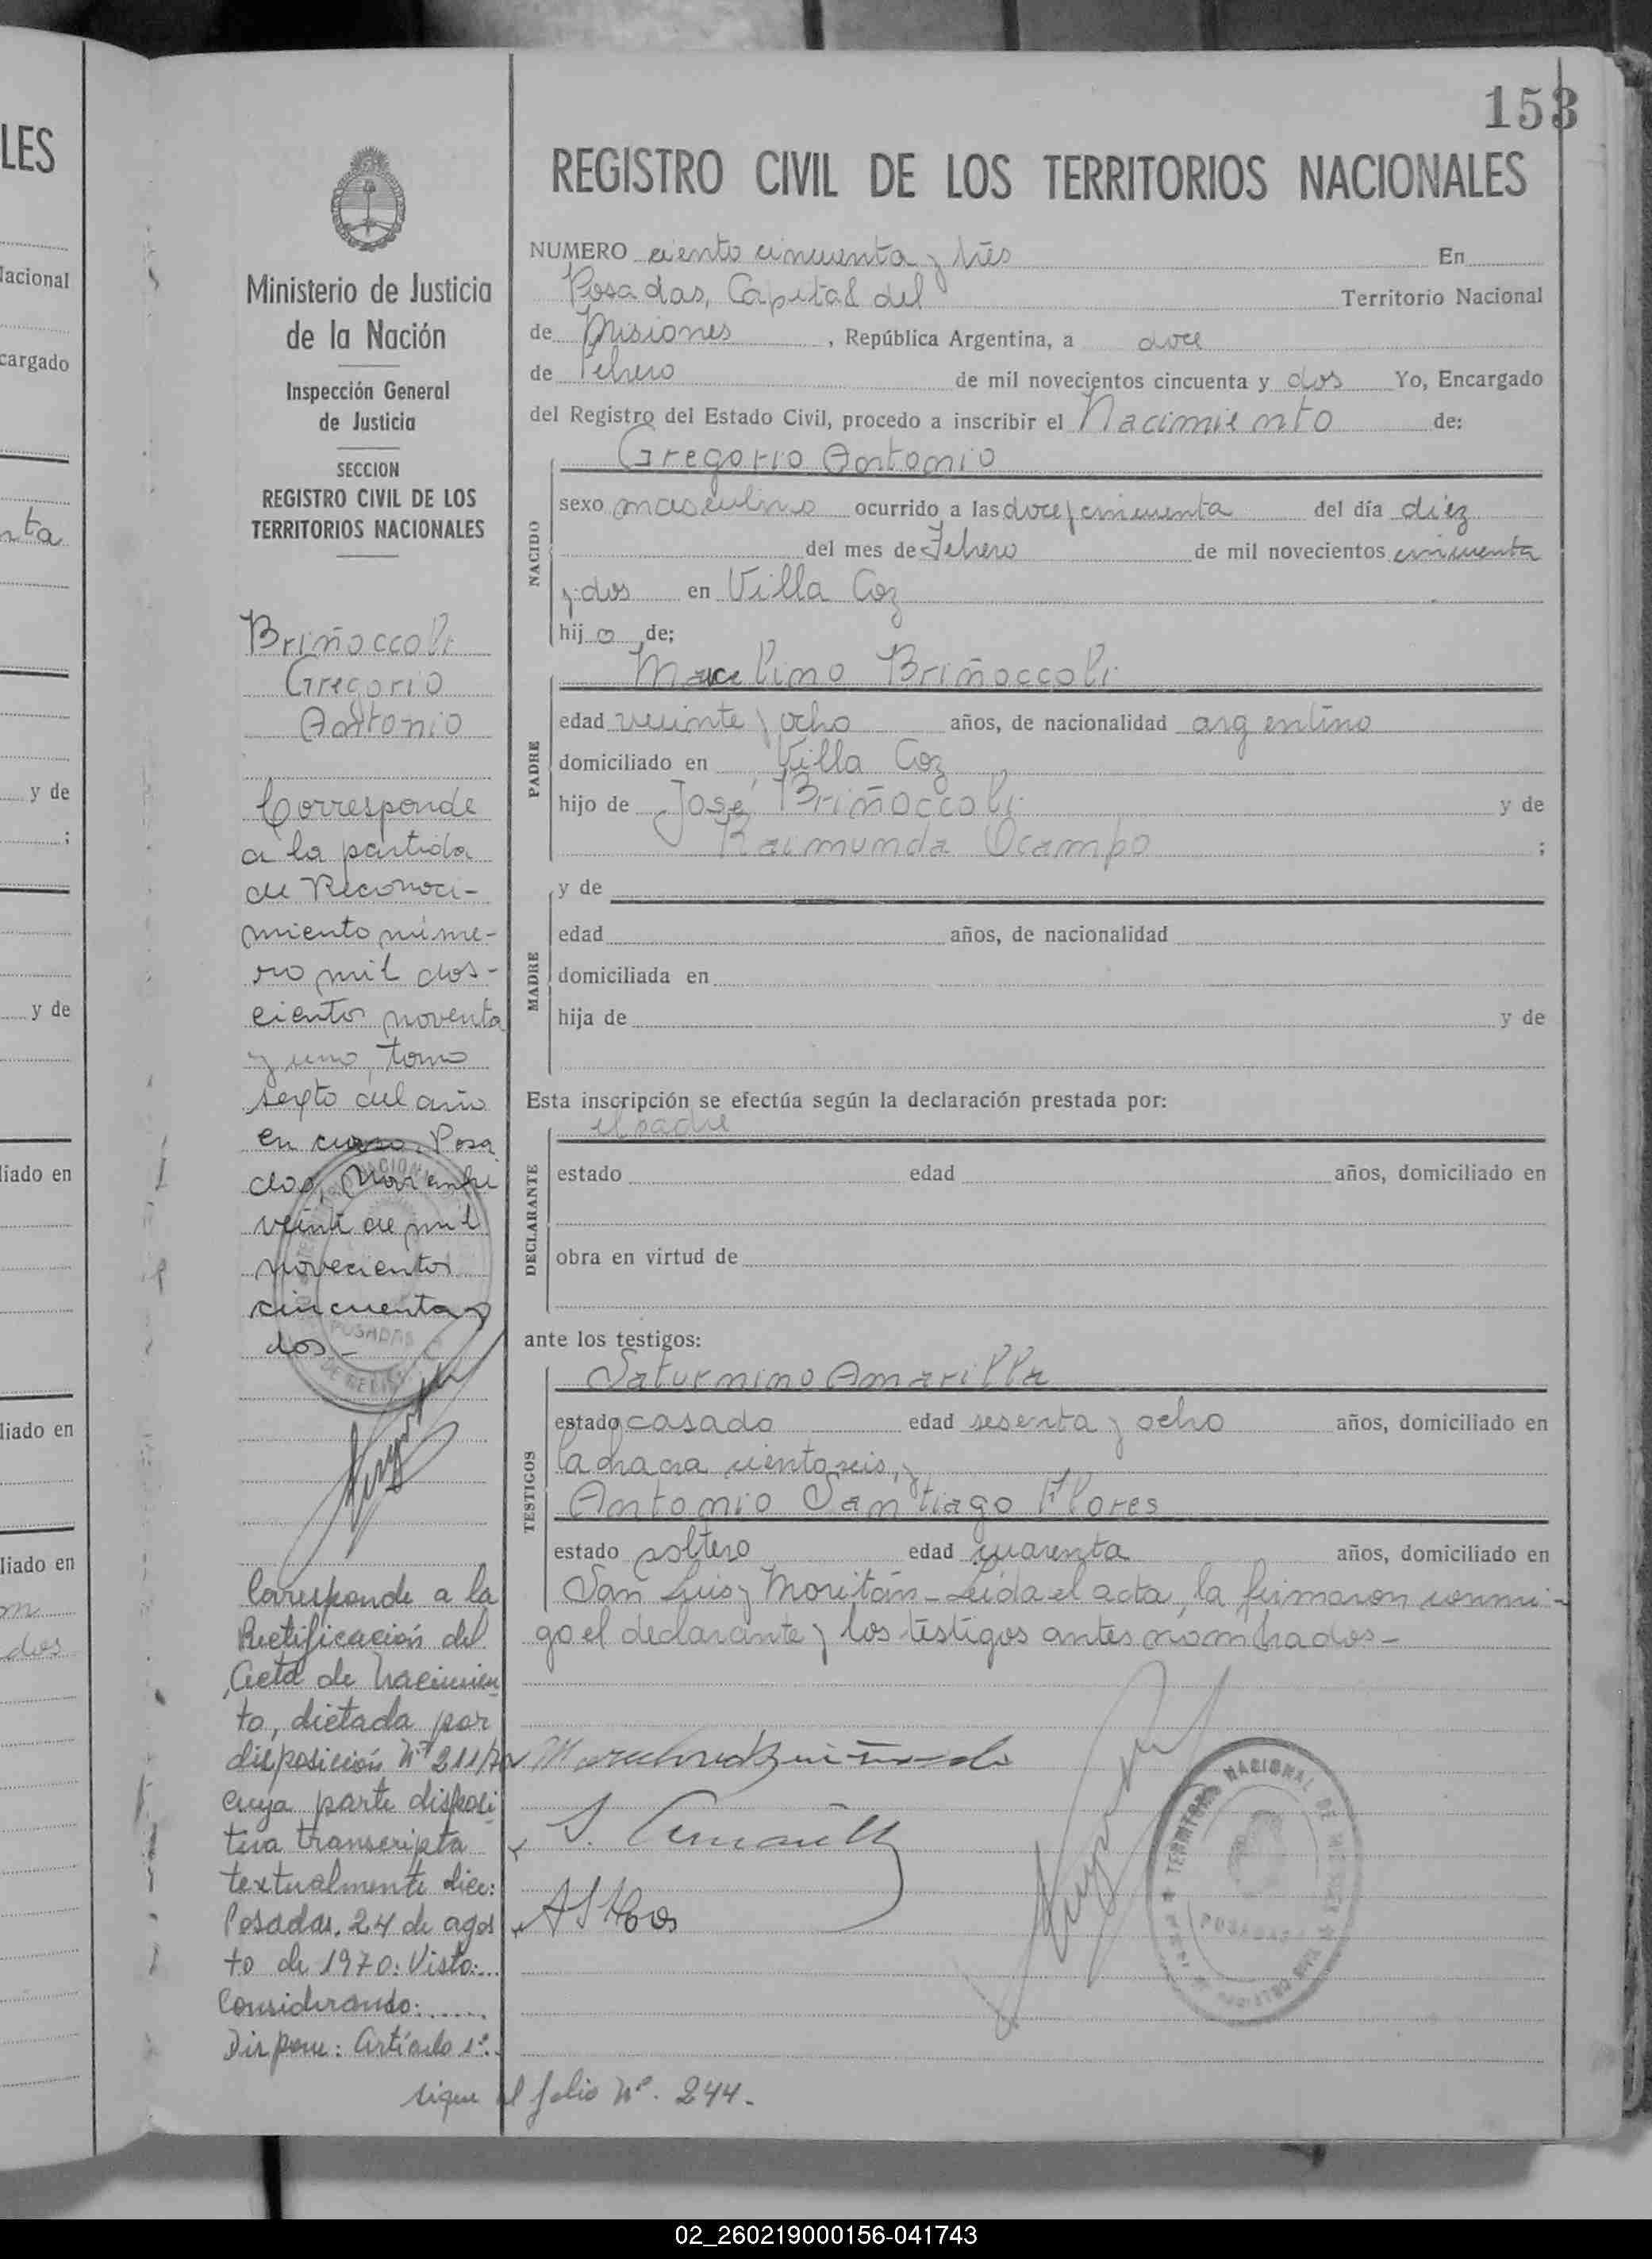 153
REGISTRO CIVIL DE LOS TERRITORIOS NACIONALES
NUMERO ciento cincuenta y tres En
Posadas, Capital del Territorio Nacional
de Misiones, República Argentina, a doce
de Febrero de mil novecientos cincuenta y dos Yo, Encargado
del Registro del Estado Civil, procedo a inscribir el Nacimiento de:
Gregorio Antonio
NACIDO
sexo masculino ocurrido a las doce y cincuenta del día diez
del mes de Febrero de mil novecientos cincuenta
y dos en Villa Coz
hijo de;
Marcelino Briñoccoli
PADRE
edad veinte y ocho años, de nacionalidad argentino
domiciliado en Villa Coz
hijo de José Briñoccoli y de
Raimunda Ocampo ;
MADRE
y de
edad años, de nacionalidad
domiciliada en
hija de y de
Esta inscripción se efectúa según la declaración prestada por:
el padre
DECLARANTE
estado edad años, domiciliado en
obra en virtud de
ante los testigos:
Saturnino Amarilla
TESTIGOS
estado casado edad sesenta y ocho años, domiciliado en
la chacra ciento seis, y
Antonio Santiago Flores
estado soltero edad cuarenta años, domiciliado en
San Luis y Moritán - Leída el acta, la firmaron conmi-
go el declarante y los testigos antes nombrados -
S. Amarilla
Ministerio de Justicia
de la Nación
Inspección General
de Justicia
SECCION
REGISTRO CIVIL DE LOS
TERRITORIOS NACIONALES
Briñoccoli
Gregorio
Antonio
Corresponde
a la partida
de Reconoci-
miento núme-
ro mil dos-
cientos noventa
y uno, tomo
sexto del año
en curso. Posa
das, Noviembre
veinte de mil
novecientos
cincuenta y
dos -
Corresponde a la
Rectificación del
Acta de nacimien
to, dictada por
disposición Nº 211/70
cuya parte disposi
tiva transcripta
textualmente dice:
Posadas, 24 de agos
to de 1970: Visto:...
Considerando:.....
Dispone: Artículo 1º.
sigue al folio Nº. 244.
TERRITORIO NACIONAL DE MISIONES
POSADAS
LES
Nacional
cargado
nta
y de
;
y de
liado en
liado en
liado en
dos
02_260219000156-041743